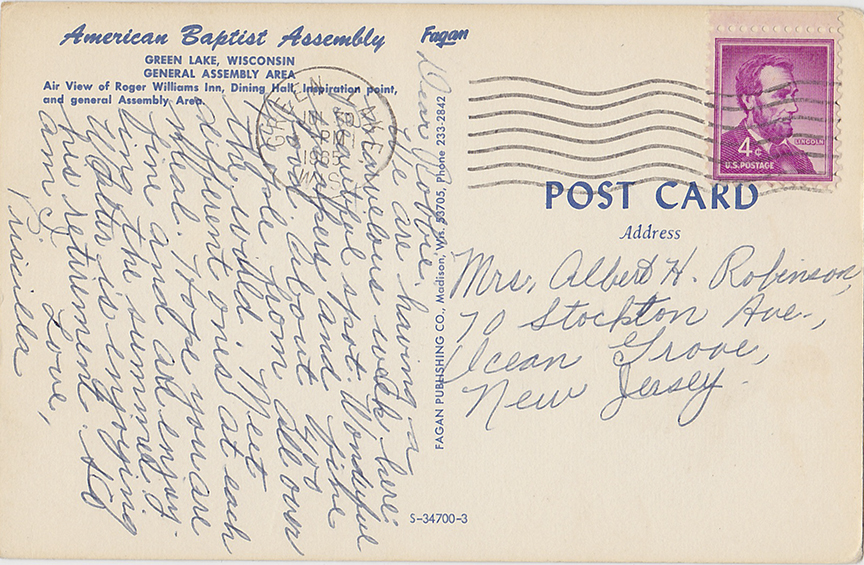 American Baptist Assembly
GREEN LAKE, WISCONSIN
GENERAL ASSEMBLY AREA
Air View of Roger Williams Inn, Dining Hall, Inspiration point,
and general Assembly Area.
Fagan
Dear Robbie,
We are having a
marvelous week here.
Beautiful spot. Wonderful
and fine
food. About 40
people from all over
the world. Meet
different ones at each
meal. Hope you are
fine and are enjoy-
ing the summer.
is enjoying
his retirement. So
am I.
Love,
Priscilla
FAGAN PUBLISHING CO., Madison, Wis. 53705, Phone 233-2842
S-34700-3
GREEN LAKE
PM
1965
WIS.
4¢
LINCOLN
U.S. POSTAGE
POST CARD
Address
Mrs. Albert H. Robinson,
70 Stockton Ave.,
Ocean Grove,
New Jersey.